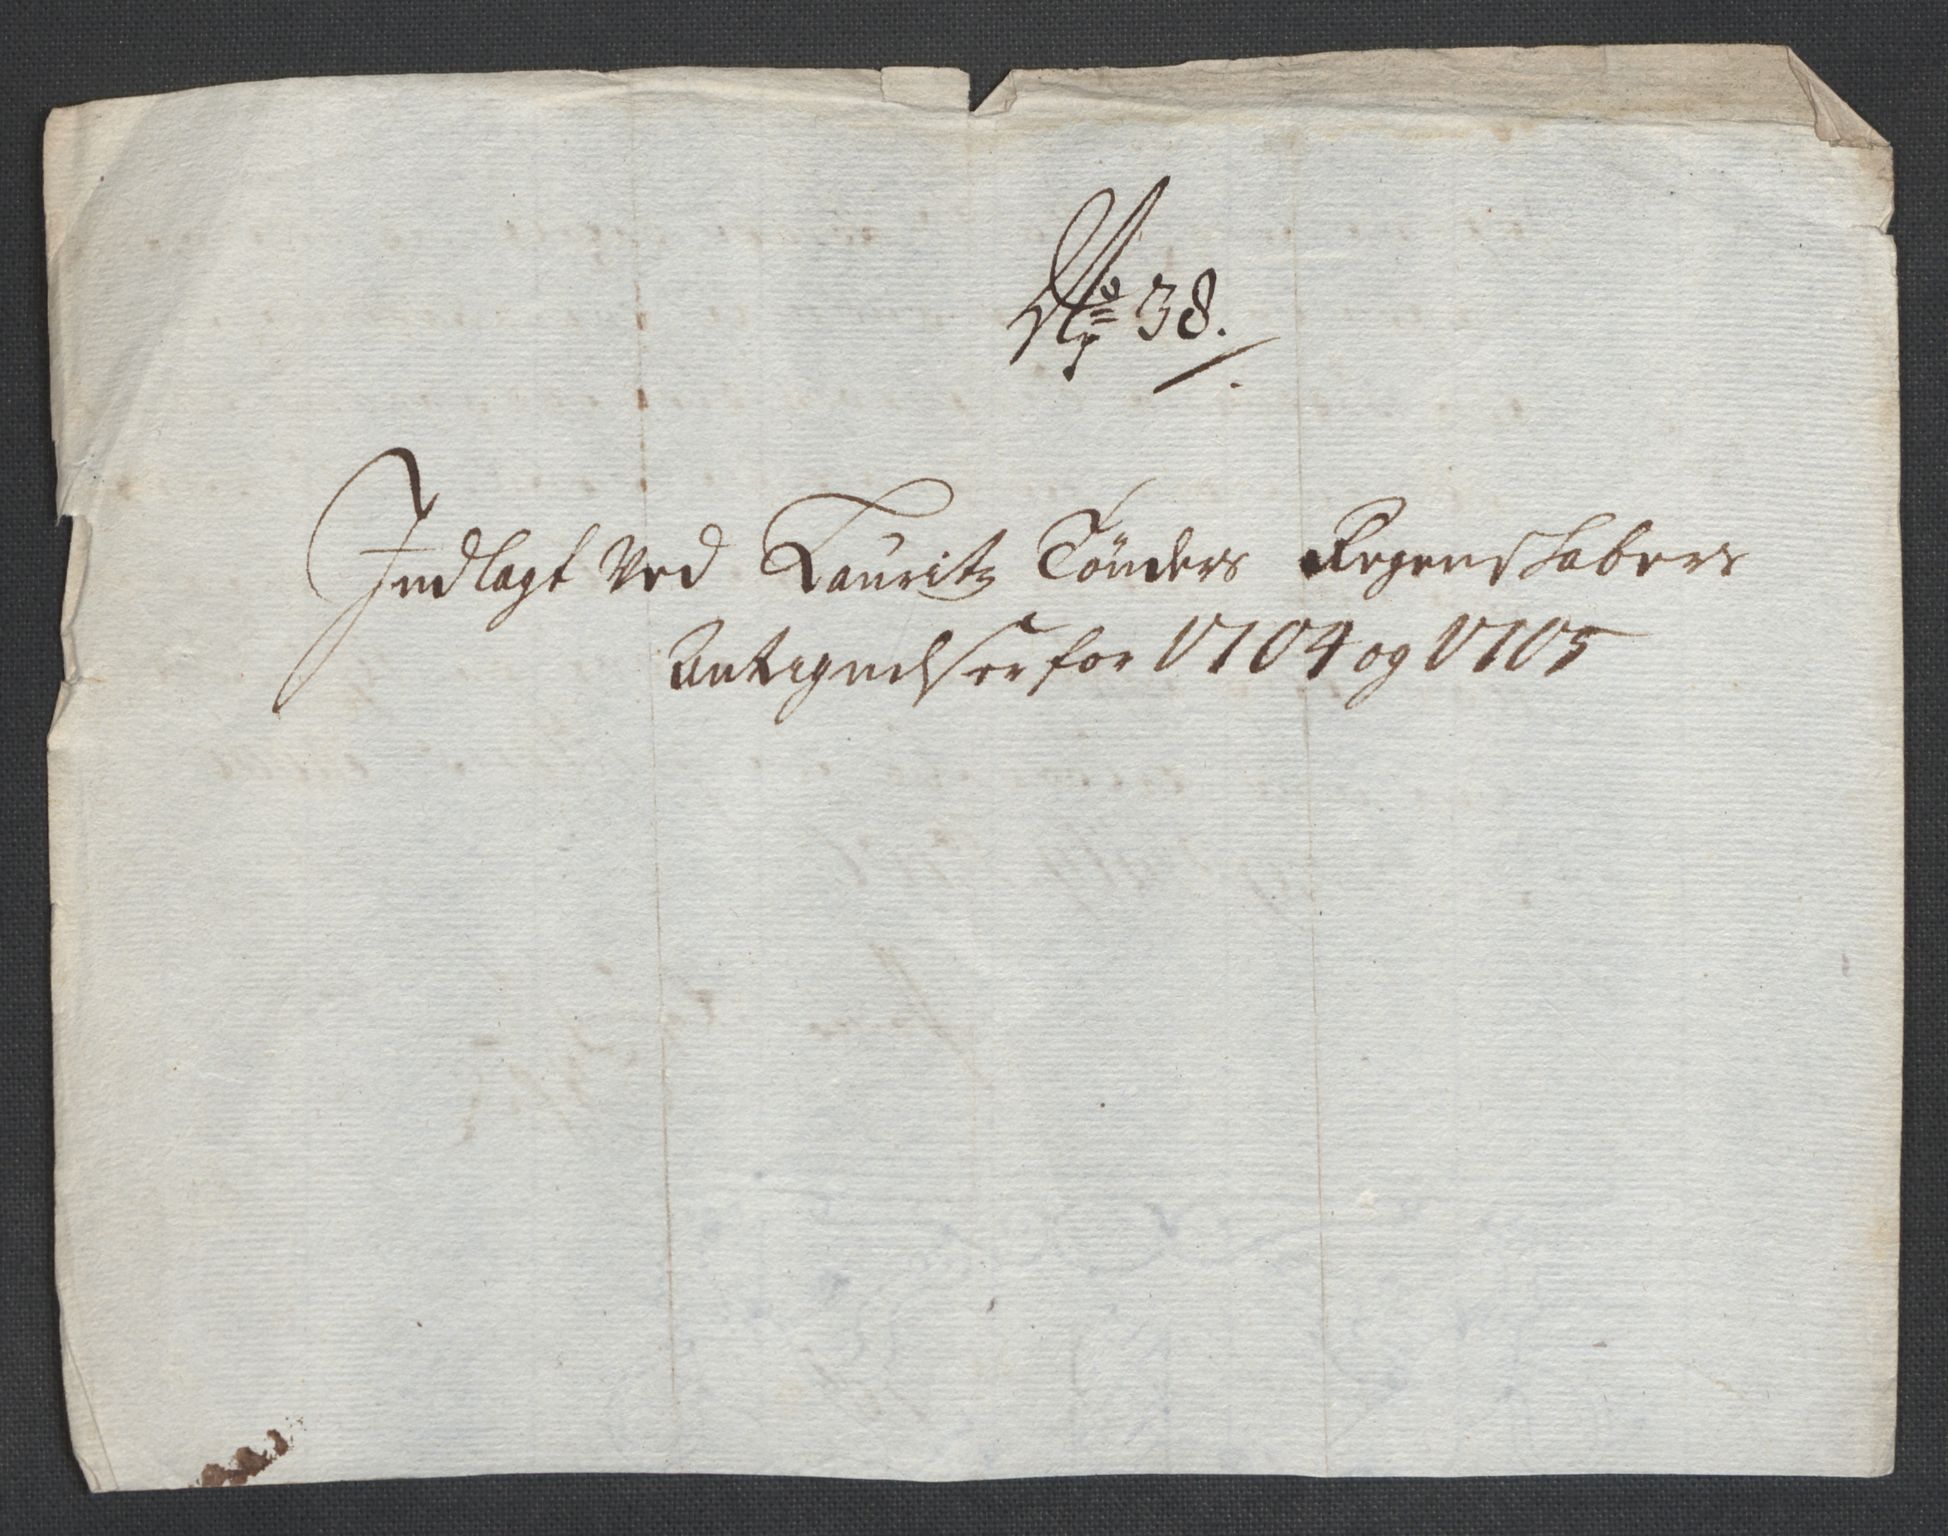 No 38.
Indlagt Ved Lauritz Tønders Regenskabers
Antegnelser for 1704 og 1705